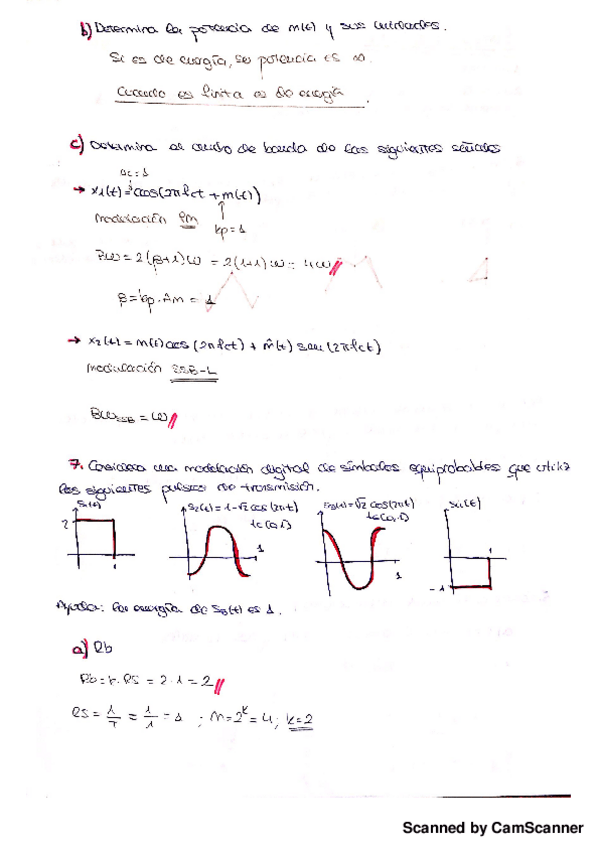 b) Determina la potencia de m(t) y sus unidades.
Si es de energía, su potencia es ∞.
Cuando es finita es de energía.
c) Determina el ancho de banda de las siguientes señales
ac=1
→ x1(t) = cos(2πfct + m(t))
modulación PM
kp=1
BW = 2(β+1)W = 2(1+1)W = 4W
β = kp·Am = 1
→ x2(t) = m(t)cos(2πfct) + m̂(t) sen(2πfct)
modulación SSB-L
BW SSB = W
7. Considera una modelación digital de símbolos equiprobables que utiliza
los siguientes pulsos de transmisión.
S1(t) S2(t) = 1-√2 cos(2πt) S3(t) = √2 cos(2πt) S4(t)
t∈(0,1) t∈(0,1)
2 1 1 1 1 -1
Ayuda: la energía de S3(t) es 1.
a) Rb
Rb = k·Rs = 2·1 = 2
Rs = 1/T = 1/1 = 1 ; M = 2^k = 4 ; k=2
Scanned by CamScanner